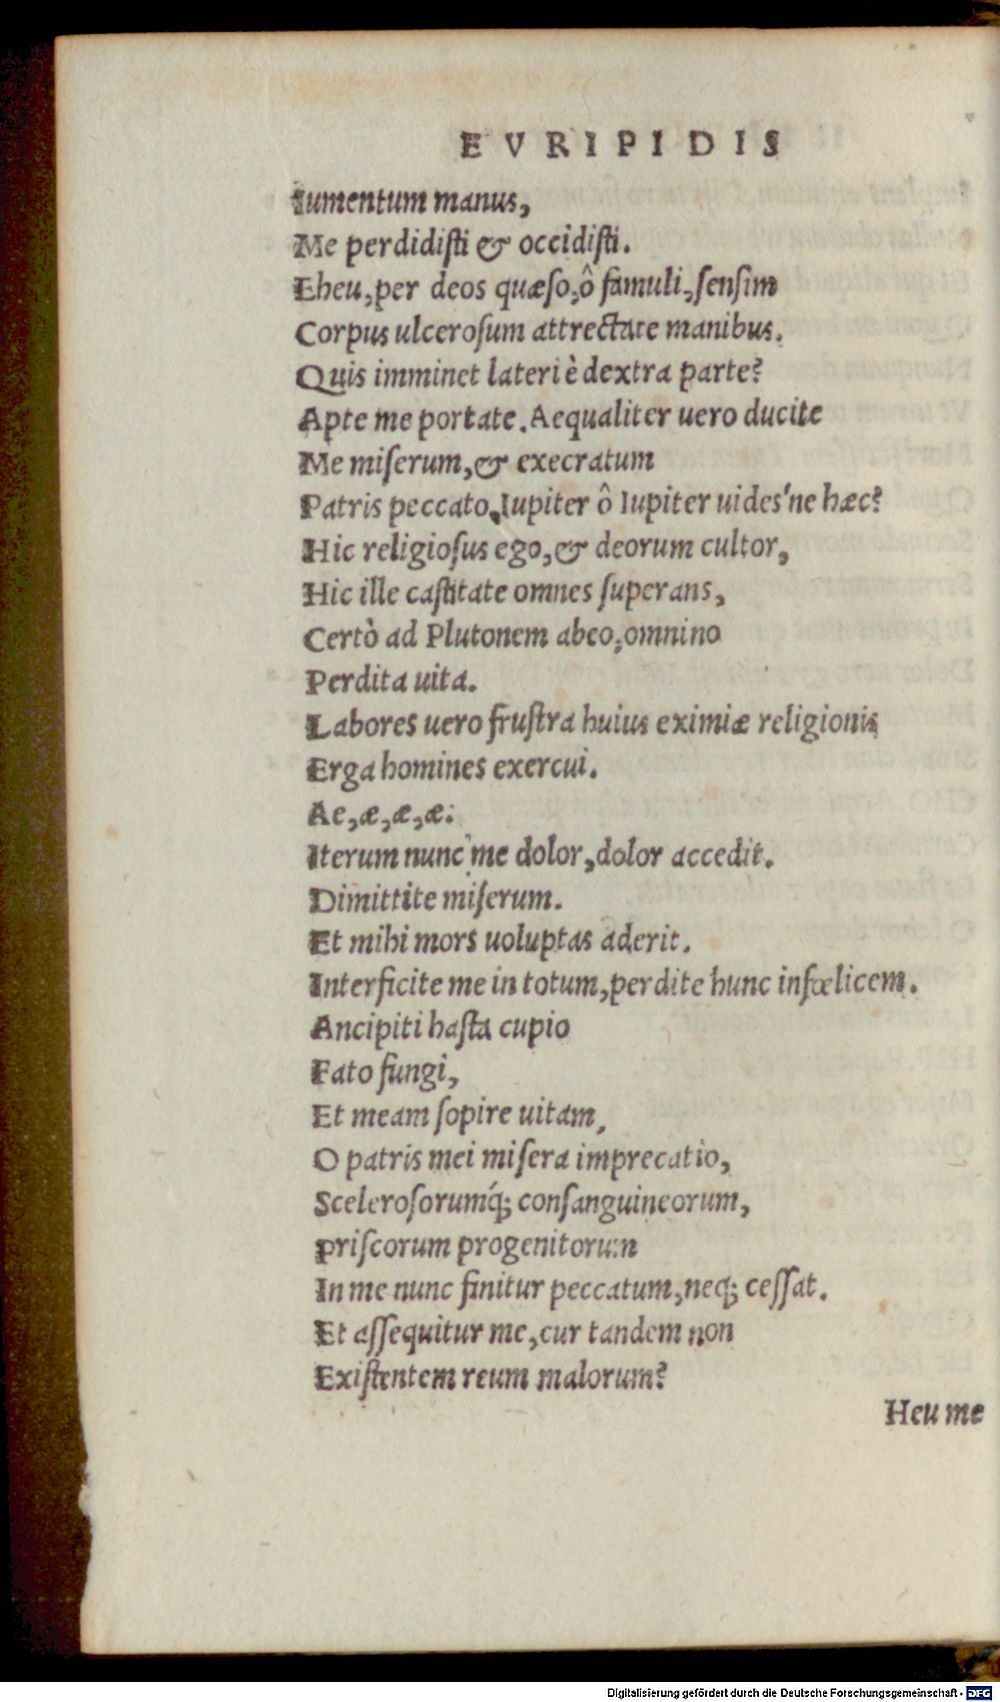 EVRIPIDIS
Iumentum manus,
Me perdidiſti & occidiſti.
Eheu, per deos quæſo, ô famuli, ſenſim
Corpus ulceroſum attrectate manibus.
Quis imminet lateri è dextra parte?
Apte me portate. Aequaliter uero ducite
Me miſerum, & execratum
Patris peccato, Iupiter ô Iupiter uides'ne hæc?
Hic religioſus ego, & deorum cultor,
Hic ille caſtitate omnes ſuperans,
Certò ad Plutonem abeo, omnino
Perdita uita.
Labores uero fruſtra huius eximiæ religionis
Erga homines exercui.
Ae, æ, æ, æ:
Iterum nunc me dolor, dolor accedit.
Dimittite miſerum.
Et mihi mors uoluptas aderit.
Interficite me in totum, perdite hunc infœlicem.
Ancipiti haſta cupio
Fato fungi,
Et meam ſopire uitam,
O patris mei miſera imprecatio,
Sceleroſorumq́; conſanguineorum,
priſcorum progenitorum
In me nunc finitur peccatum, neq; ceſſat.
Et aſſequitur me, cur tandem non
Exiſtentem reum malorum?
Heu me
Digitalisierung gefördert durch die Deutsche Forschungsgemeinschaft - DFG